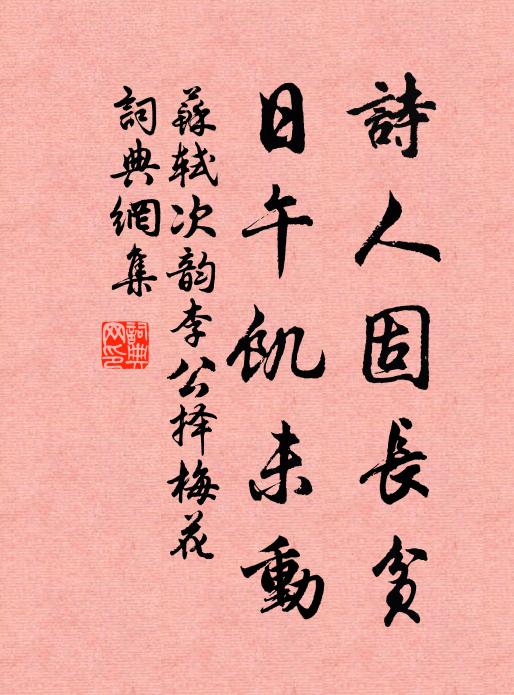 詩人固長貧
日午飢未動
蘇軾次韵李公择梅花
詞典網集
詞典网印